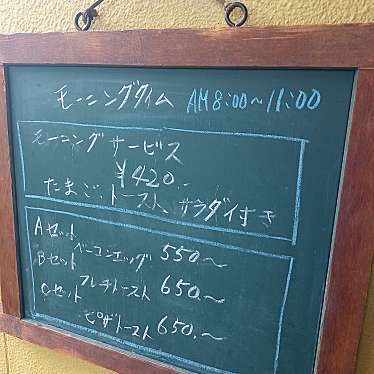 モーニングタイム AM 8:00〜11:00
モーニングサービス
¥420.-
たまご、トースト、サラダイすき
Aセット ベーコンエッグ 550.〜
Bセット フレンチトースト 650.〜
Cセット ピザトースト 650.〜